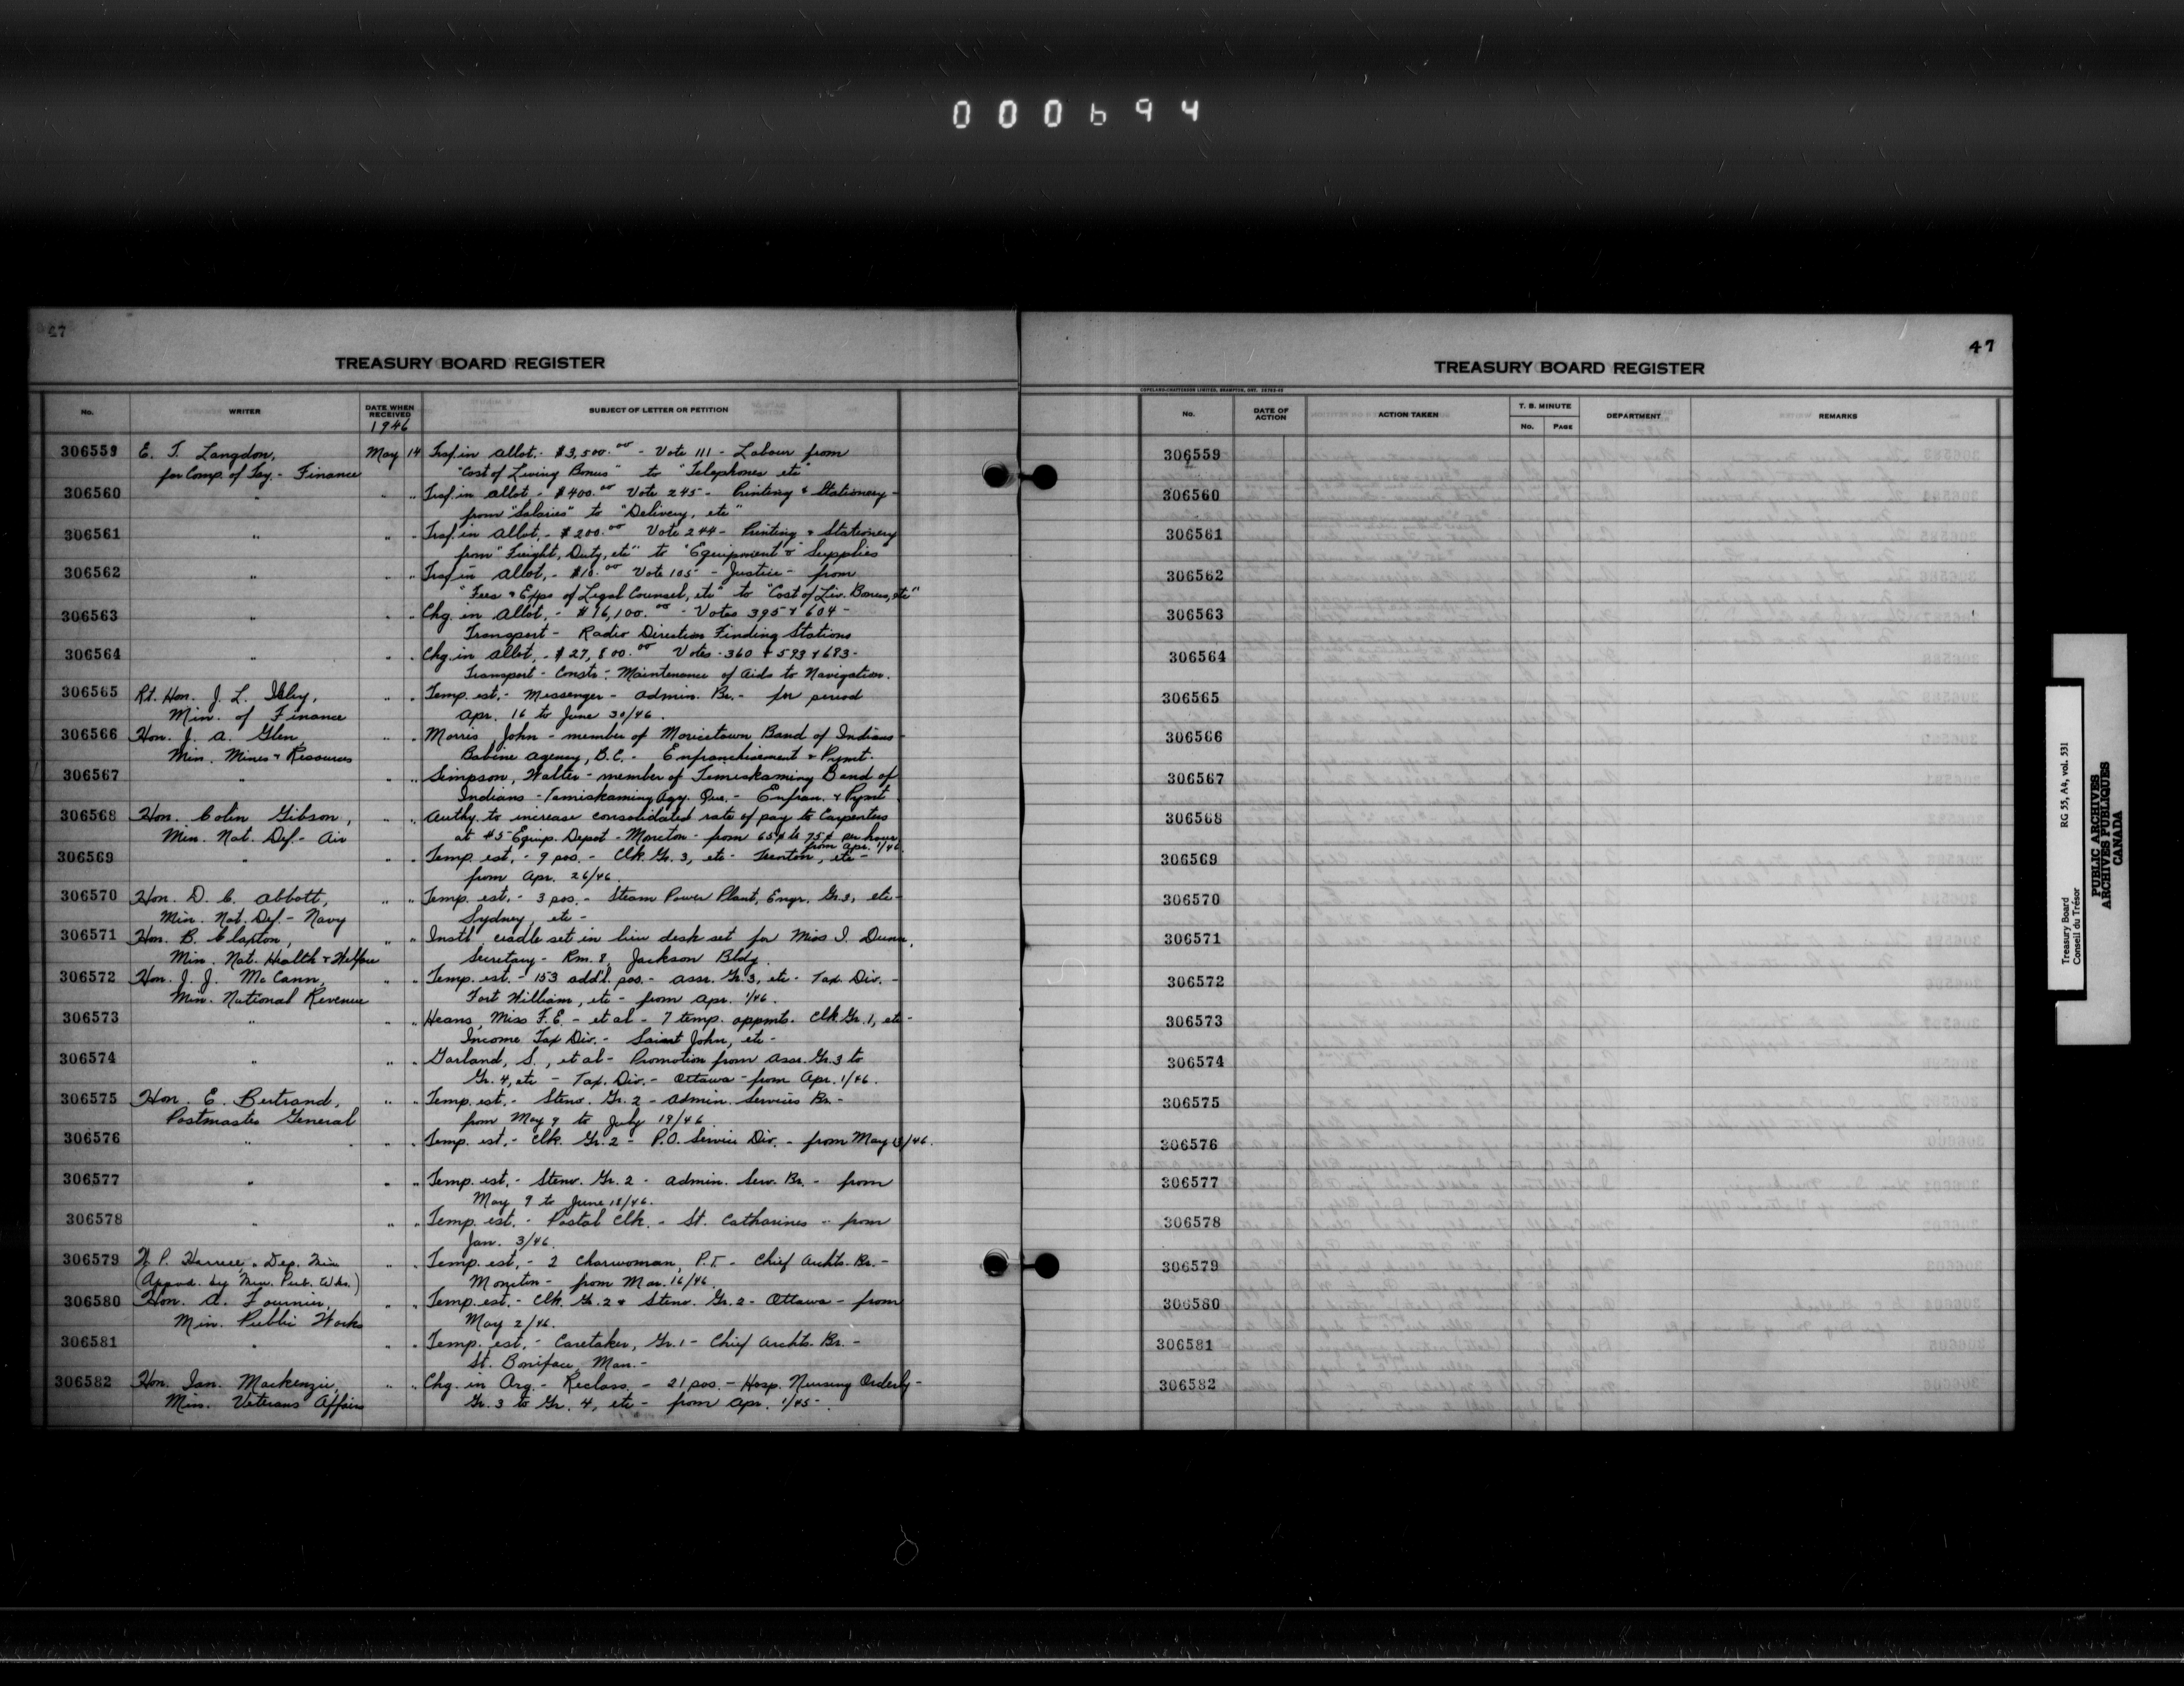 000694
47
TREASURY BOARD REGISTER
No. WRITER DATE WHEN RECEIVED SUBJECT OF LETTER OR PETITION
1946
306559 E. T. Langdon, May 14 Trsf. in Allot.- $3,500.00 - Vote 111 - Labour from
for Comp. of Tsy. - Finance "Cost of Living Bonus" to "Telephones etc"
306560 " " " Trsf. in Allot.- $400.00 Vote 245 - Printing & Stationery -
from "Salaries" to "Delivery, etc"
306561 " " " Trsf. in Allot.- $200.00 Vote 244 - Printing & Stationery
from "Freight, Duty, etc" to "Equipment & Supplies"
306562 " " " Trsf. in Allot.- $10.00 Vote 105 - Justice - from
"Fees & Exps of Legal Counsel, etc" to "Cost of Liv. Bonus, etc"
306563 " " " Chg. in Allot.- $16,100.00 - Votes 395 & 604 -
Transport - Radio Direction Finding Stations
306564 " " " Chg. in Allot.- $27,800.00 Votes - 360 & 593 & 683 -
Transport - Constr - Maintenance of Aids to Navigation.
306565 Rt. Hon. J. L. Ilsley, " " Temp. est.- Messenger - Admin. Br.- for period
Min. of Finance Apr. 16 to June 30/46.
306566 Hon. J. A. Glen, " " Morris, John - member of Moricetown Band of Indians -
Min. Mines & Resources Babine Agency, B.C. - Enfranchisement & Pymt.
306567 " " " Simpson, Walter - member of Temiskaming Band of
Indians - Temiskaming Agy. Que. - Enfran. & Pymt
306568 Hon. Colin Gibson, " " Authy. to increase consolidated rate of pay to Carpenters
Min. Nat. Def.- Air at #5 Equip. Depot - Moncton - from 65¢ to 75¢ per hour
from Apr. 1/46.
306569 " " " Temp. est.- 9 pos. - Clk. Gr. 3, etc - Trenton, etc -
from Apr. 26/46.
306570 Hon. D. C. Abbott, " " Temp. est.- 3 pos. - Steam Power Plant, Engr. Gr. 3, etc -
Min. Nat. Def.- Navy Sydney, etc -
306571 Hon. B. Claxton, " " Instl cradle set in lieu desk set for Miss I. Dunn,
Min. Nat. Health & Welfare Secretary - Rm. 8, Jackson Bldg.
306572 Hon. J. J. McCann, " " Temp. est. - 153 add'l. pos. - Assr. Gr. 3, etc - Tax. Div. -
Min. National Revenue Fort William, etc - from Apr. 1/46.
306573 " " " Heans, Miss F. E. - et al - 7 temp. appmts. Clk Gr. 1, etc -
Income Tax Div. - Saint John, etc -
306574 " " " Garland, S., et al - Promotion from Assr. Gr. 3 to
Gr. 4, etc - Tax. Div. - Ottawa - from Apr. 1/46.
306575 Hon. E. Bertrand, " " Temp. est.- Steno. Gr. 2 - Admin. Services Br. -
Postmaster General from May 9 to July 19/46
306576 " " " Temp. est.- Clk. Gr. 2 - P.O. Service Div. - from May 13/46.
306577 " " " Temp. est.- Steno. Gr. 2 - Admin. Serv. Br. - from
May 9 to June 18/46.
306578 " " " Temp. est.- Postal Clk. - St. Catharines - from
Jan. 3/46.
306579 Dep. Min " " Temp. est.- 2 Charwoman, P.T. - Chief Archts. Br. -
(Appvd. by Min. Pub. Wks.) Moncton - from Mar. 16/46.
306580 Hon. A. Fournier, " " Temp. est.- Clk. Gr. 2 & Steno. Gr. 2 - Ottawa - from
Min. Public Works May 2/46.
306581 " " " Temp. est.- Caretaker, Gr. 1 - Chief Archts. Br. -
St. Boniface, Man. -
306582 Hon. Ian. Mackenzie, " " Chg. in Org. - Reclass. - 21 pos. - Hosp. Nursing Orderly -
Min. Veterans Affairs Gr. 3 to Gr. 4, etc - from Apr. 1/45 -.
47
TREASURY BOARD REGISTER
COPELAND-CHATTERSON LIMITED, BRAMPTON, ONT.
No. DATE OF ACTION ACTION TAKEN T. B. MINUTE DEPARTMENT REMARKS
No. PAGE
306559
306560
306561
306562
306563
306564
306565
306566
306567
306568
306569
306570
306571
306572
306573
306574
306575
306576
306577
306578
306579
306580
306581
306582
Treasury Board RG 55, A4, vol. 531
Conseil du Trésor
PUBLIC ARCHIVES
ARCHIVES PUBLIQUES
CANADA